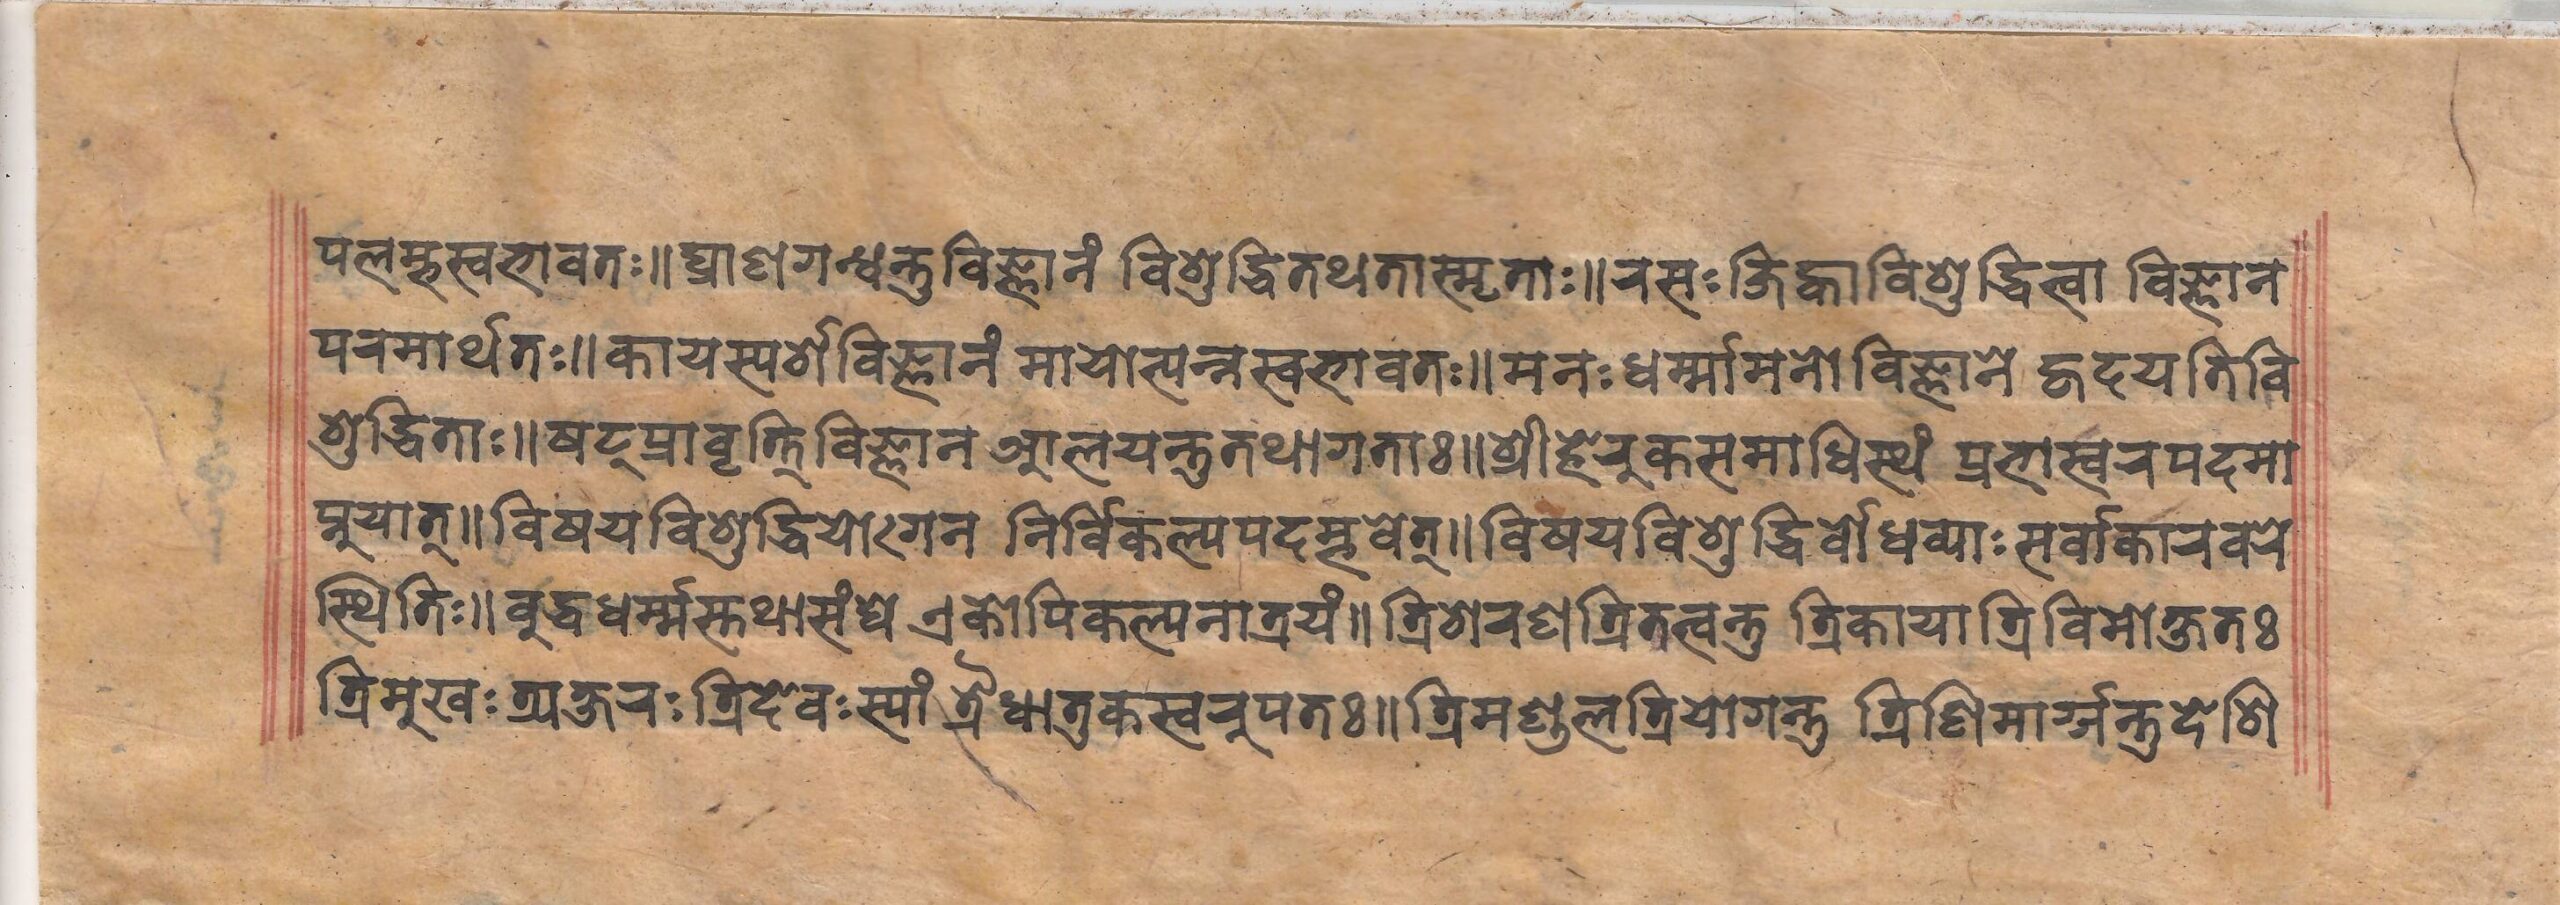 पलम्भस्वभावतः॥घ्राणगन्धन्तुविज्ञानं विशुद्धितथतास्मृताः॥रसःजिह्वाविशुद्धित्वा विज्ञान
परमार्थतः॥कायस्पर्शविज्ञानं मायोत्पन्नस्वभावतः॥मनःधर्म्मामनोविज्ञाने हृदयतिवि
शुद्धिताः॥षट्प्रावृत्तिविज्ञान आलयन्तुतथागताः॥श्रीहेरुकसमाधिस्थं प्रभास्वरपदमा
प्नुयात्॥विषयविशुद्धियोगेन निर्विकल्पपदम्भवेत्॥विषयविशुद्धिर्बोधव्याःसर्वाकारवरे
स्थितिः॥बुद्धधर्म्मस्तथासंघे एकोपिकल्पनात्रयं॥त्रिशरणत्रितत्वन्तु त्रिकायात्रिविमोक्षतः
त्रिमुखःत्र्यक्षरःत्रिदेवःस्यां त्रैधातुकस्वरुपतः॥त्रिमण्डलत्रियोगन्तु त्रिणिमार्गन्तुदेशि